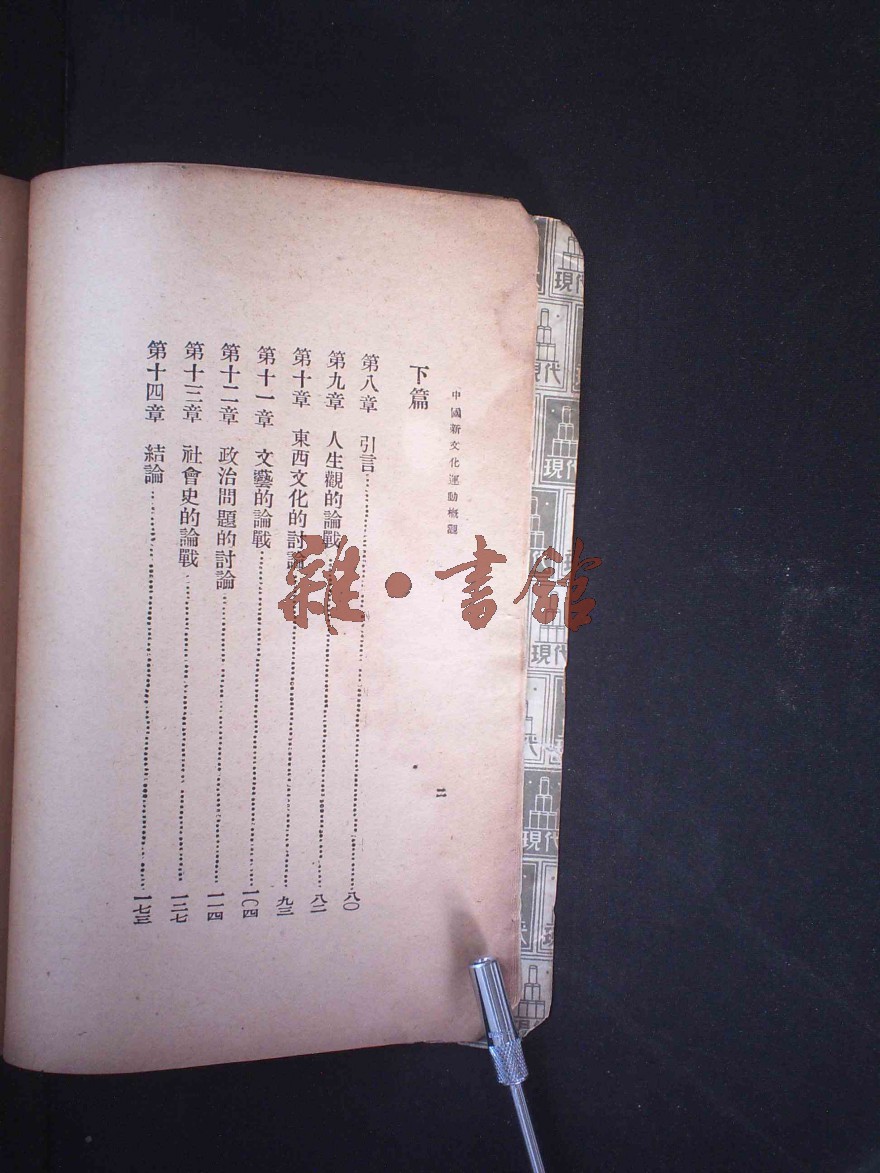 中國新文化運動概觀
二
下篇
第八章　引言……八〇
第九章　人生觀的論戰……八二
第十章　東西文化的討論……九三
第十一章　文藝的論戰……一〇四
第十二章　政治問題的討論……一一四
第十三章　社會史的論戰……一二七
第十四章　結論……一七三
雜·書館
現代
現代
現代
現代
現代